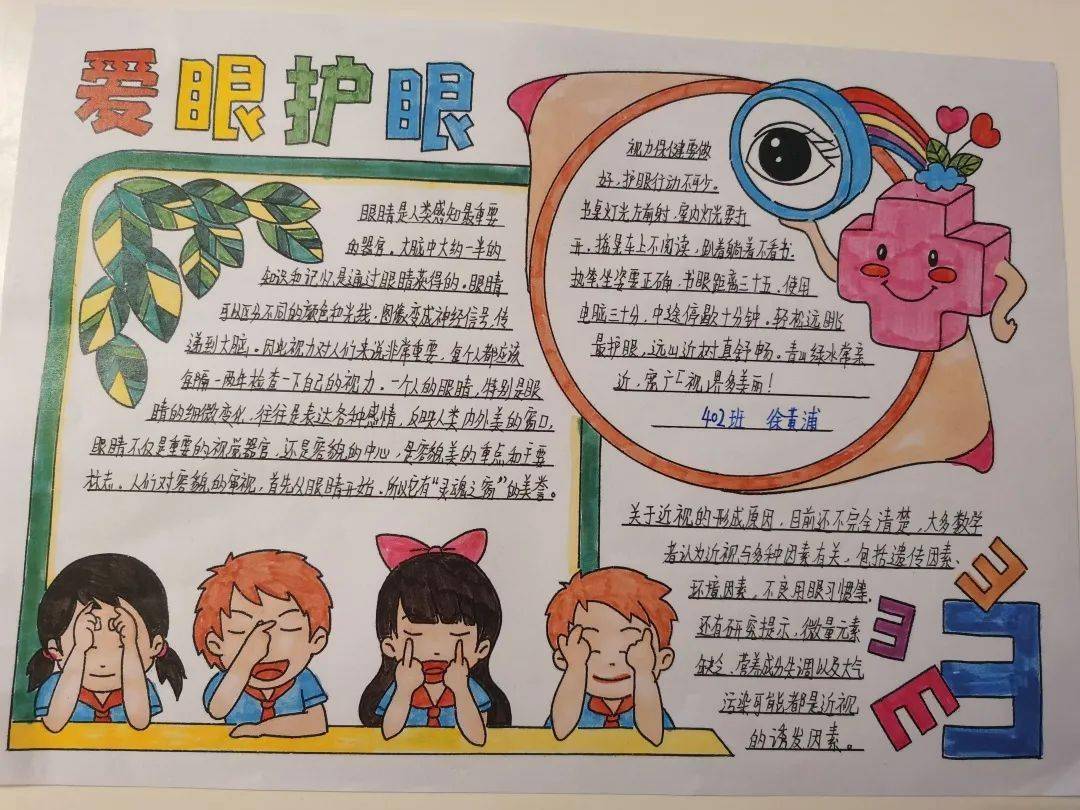 爱眼护眼
眼睛是人类感知最重要
的器官。大脑中大约一半的
知识和记忆是通过眼睛获得的。眼睛
可以区分不同的颜色和光线,图像变成神经信号,传
递到大脑。因此视力对人们来说非常重要,每个人都应该
每隔一两年检查一下自己的视力。一个人的眼睛,特别是眼
睛的细微变化,往往是表达各种感情,反映人类内外美的窗口。
眼睛不仅是重要的视觉器官,还是容貌的中心,是容貌美的重点和主要
标志。人们对容貌的审视,首先从眼睛开始。所以它有“灵魂之窗”的美誉。
视力保健要做
好,护眼行动不可少。
书桌灯光左前射,室内灯光要打
开。摇晃车上不阅读,趴着躺着不看书。
执笔坐姿要正确,书眼距离三十五。使用
电脑三十分,中途停歇十分钟。轻松远眺
最护眼,远山近树真舒畅。青山绿水常亲
近,宽广视界多美丽!
402班 徐黄浦
关于近视的形成原因,目前还不完全清楚,大多数学
者认为近视与多种因素有关,包括遗传因素、
环境因素,不良用眼习惯等。
还有研究提示,微量元素
缺乏、营养成分失调以及大气
污染可能都是近视
的诱发因素。
E
E
E
E